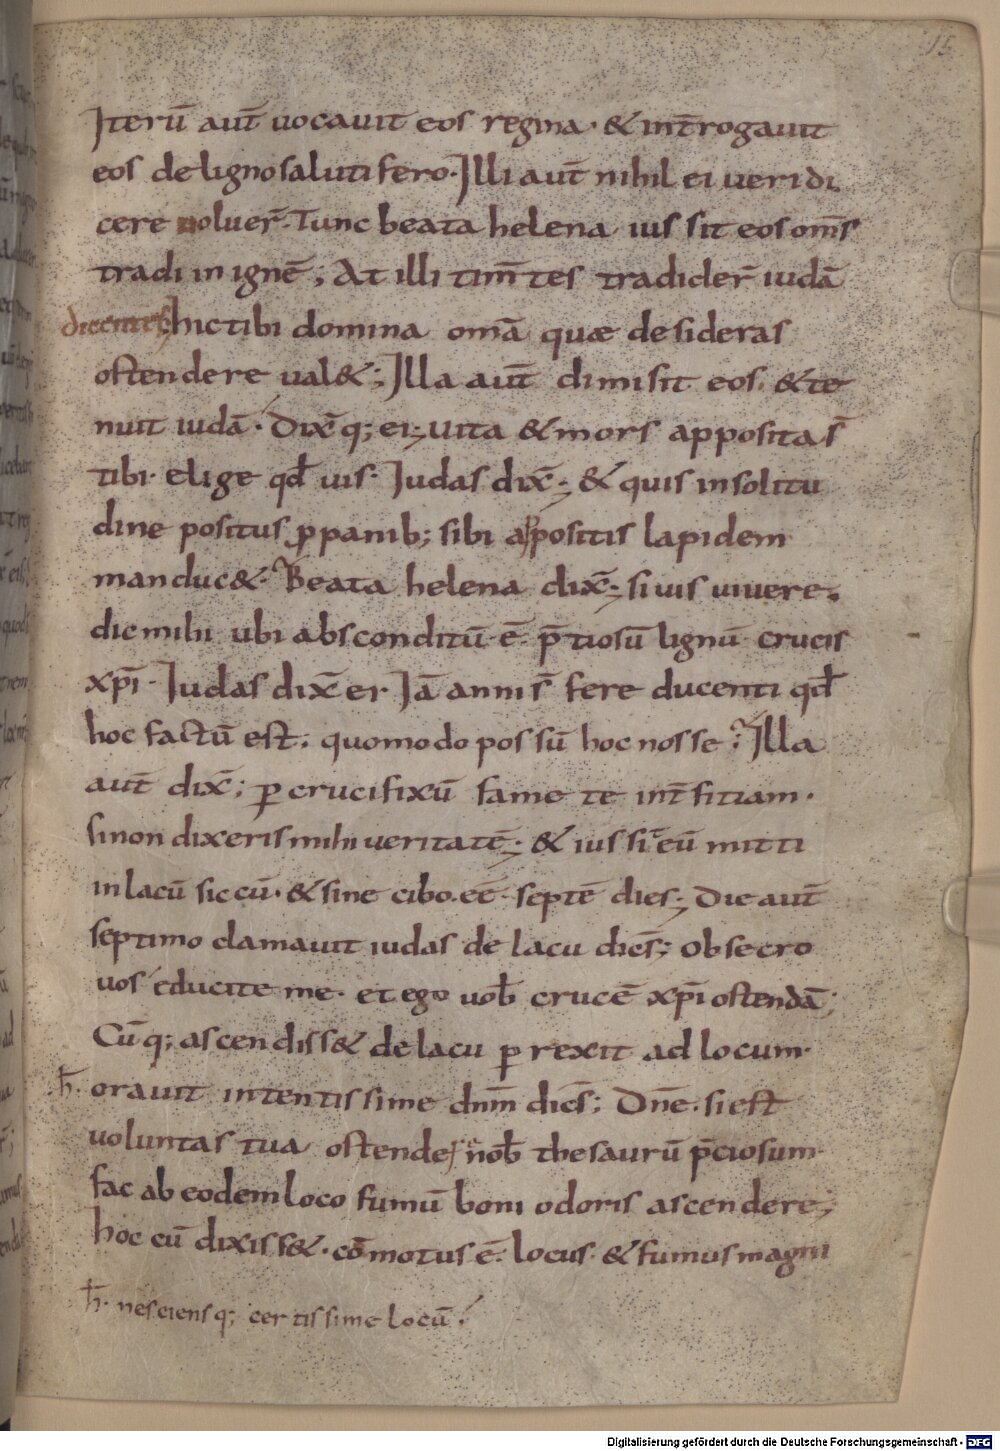 15
Iterū aut̄ vocavit eos regina· & int̄rogavit
eos de ligno salutifero· Illi aut̄ nihil ei veridi
cere noluer̄· Tunc beata helena iussit eos om̄s
tradi in ignē; At illi tim̄tes tradider̄ iudā
dicentes; hic tibi domina om̄a quæ desideras
ostendere val&; Illa aut̄ dimisit eos· & te
nuit iudā· Dix̄q; ei; vita & mors apposita s̄
tibi· elige qd̄ vis· Judas dix̄; & quis in solitu
dine positus p̱ panib; sibi appositis lapidem
manduc&· Beata helena dix̄; si vis vivere·
dic mihi ubi absconditū ē p̄tiosū lignū crucis
xp̄i· Judas dix̄ ei· Jā anni s̄ fere ducenti qd̄
hoc factū est; quomodo possū hoc nosse; Illa
aut̄ dix̄; p̱ crucifixū fame te int̄fitiam·
si non dixeris mihi veritatē; & iussit eū mitti
in lacū siccū· & sine cibo ee̅· septē dies; Die aut̄
septimo clamavit iudas de lacu dicēs; Obsecro
vos educite me· et ego vob̄ crucē xp̄i ostendā;
Cū q; ascendiss& de lacu p̱rexit ad locum·
h̄· oravit intentissime dn̄m dicēs; Dn̄e· si est
voluntas tua ostende nob̄ thesaurū p̄ciosum·
fac ab eodem loco fumū boni odoris ascendere;
hoc cū dixiss&· cōmotus ē· locus· & fumus magni
h̄· nesciens q; certissime locū·
Digitalisierung gefördert durch die Deutsche Forschungsgemeinschaft - DFG